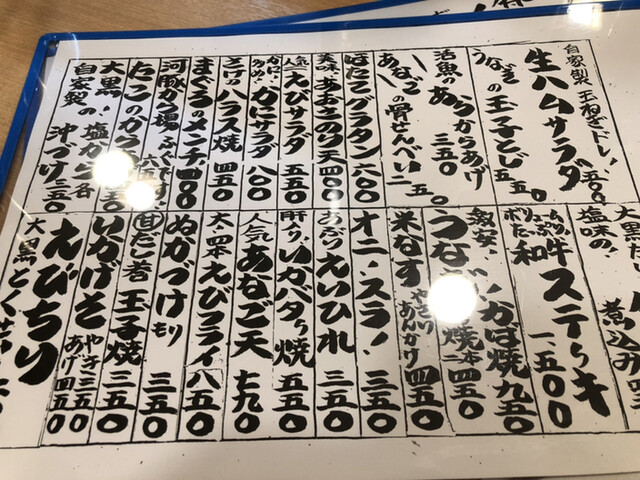 自家製玉ねぎドレ!
生ハムサラダ 五〇〇
うなぎの玉子とじ 五五〇
活魚のあらからあげ 三五〇
あなごの骨せんべい 二五〇
ほたてグラタン 六〇〇
美味 あおさのり天 四〇〇
人気 えびサラダ 五五〇
かに・かにサラダ 八〇
さけのハラス焼 四五〇
まぐろのメンチ 四〇〇
河豚から揚 ふぐです! 六五〇
たこのから
大黒、塩から 各
自家製の沖づけ 三五〇
大黒
塩味の
煮込み
ボリュームたっぷり
和牛ステーキ 一、五〇〇
激安・うなぎかば焼 九五〇
焼 二本 四五〇
米なす やきorあんかけ 四五〇
オニ・スラ! 三五〇
あぶりえいひれ 三五〇
肝入り、いかベタら焼 五五〇
人気 あなご天 七九〇
大・四本 えびフライ 八五〇
ぬかづけ もり 三五〇
甘 だし巻玉子焼 三五〇
いかげそ やき 三五〇 あげ 四五〇
えびちり
大黒とく